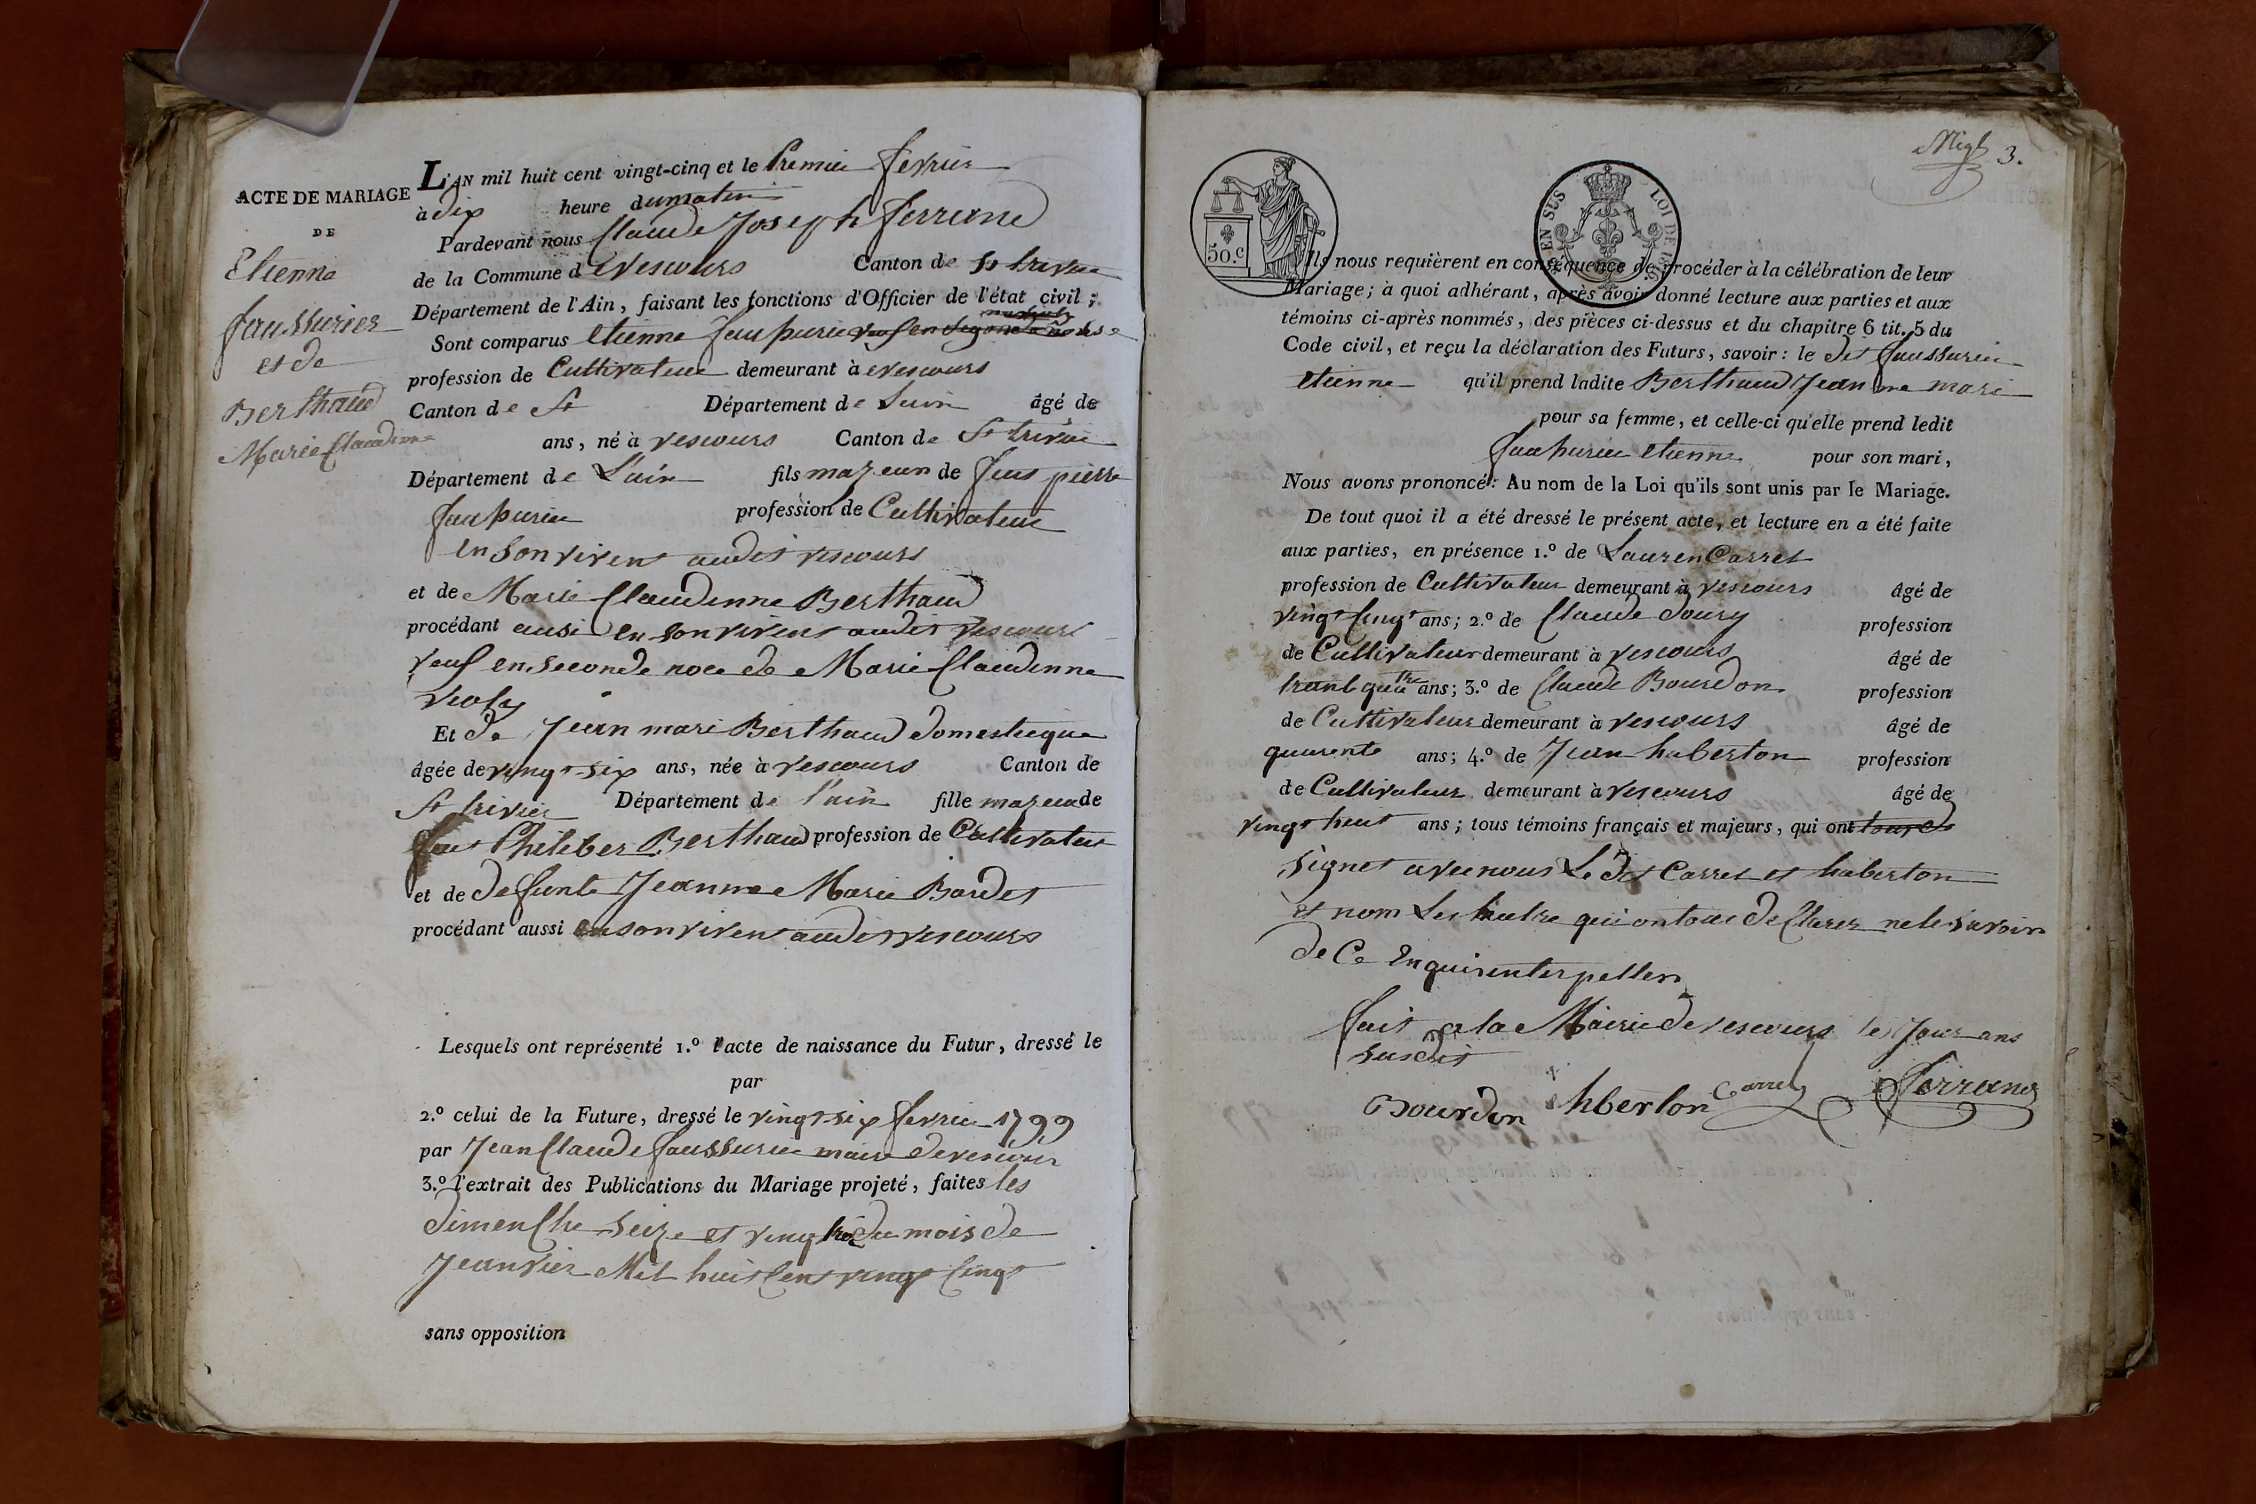 ACTE DE MARIAGE
DE
Etienne
faussurier
et de
Berthaud
Marie Claudinne
L'AN mil huit cent vingt-cinq et le Premier fevrier
à dix heure du matin
Pardevant nous Claude Joseph ferrand
de la Commune d evescours Canton de St trivier
Département de l'Ain, faisant les fonctions d'Officier de l'état civil;
Sont comparus etienne faussurier
profession de Cultivateur demeurant à evescours
Canton de St Département de Lain âgé de
ans, né à vescours Canton de St trivier
Département de L'ain fils majeur de feus pierre
faussurier profession de Cultivateur
en son vivent audit vescours
et de Marie Claudinne Berthaud
procédant ausi en son vivent audit vescours
veuf en seconde noce de Marie Claudinne
violy
Et de Jean mari Berthaud domestique
âgée de vingt-six ans, née à vescours Canton de
St trivier Département de l'ain fille majeur de
feus Philiber Berthaud profession de Cultivateur
et de defunte Jeanne Marie Bardet
procédant aussi en son vivent audit vescours
Lesquels ont représenté 1.º l'acte de naissance du Futur, dressé le
par
2.º celui de la Future, dressé le vingt-six fevrier 1799
par Jean Claude faussurier maire de vescours
3.º l'extrait des Publications du Mariage projeté, faites les
dimenche seize et vingt trois du mois de
Jeanvier Mil huit Cent vingt Cinq
sans opposition
3.
50.c
EN SUS
LOI DE
Ils nous requièrent en conséquence de procéder à la célébration de leur
Mariage; à quoi adhérant, après avoir donné lecture aux parties et aux
témoins ci-après nommés, des pièces ci-dessus et du chapitre 6 tit. 5 du
Code civil, et reçu la déclaration des Futurs, savoir: le dit faussurier
etienne qu'il prend ladite Berthaud Jean ne mari
pour sa femme, et celle-ci qu'elle prend ledit
faussurier etienne pour son mari,
Nous avons prononcé: Au nom de la Loi qu'ils sont unis par le Mariage.
De tout quoi il a été dressé le présent acte, et lecture en a été faite
aux parties, en présence 1.º de Lauren Carret
profession de Cultivateur demeurant à vescours âgé de
vingt Cinq ans; 2.º de Claude Joury profession
de Cultivateur demeurant à vescours âgé de
trant quatre ans; 3.º de Claude Bourdon profession
de Cultivateur demeurant à vescours âgé de
quarente ans; 4.º de Jean haberton profession
de Cultivateur demeurant à vescours âgé de
vingt huit ans; tous témoins français et majeurs, qui ont tous d
signet avec nous Le dit Carret et haberton
et nom les hautre qui on tous de Clarer ne le savoir
de Ce Enquis enterpeller
fait a la Mairie de vescours les Jour ans
susdit
Bourdon hberton Carret ferrand